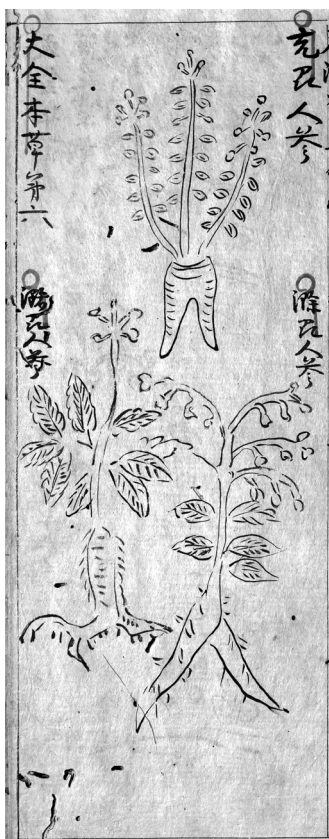 兗州人参
滁州人参
大全本草苐六
潞州人参